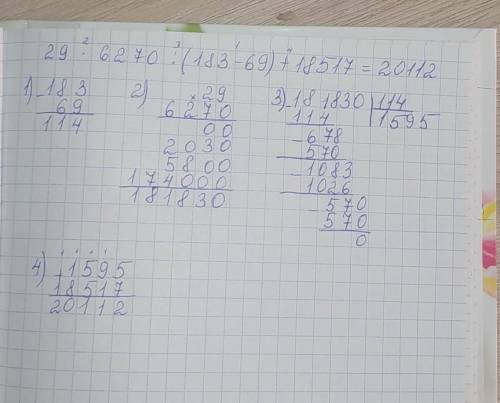 29 · 6270 : (183 - 69) + 18517 = 20112
2 3 1 4
1) - 183
69
114
2) × 29
6270
00
2030
5800
174000
181830
3) - 181830 | 114
114 1595
- 678
570
- 1083
1026
- 570
570
0
4) + 1595
18517
20112